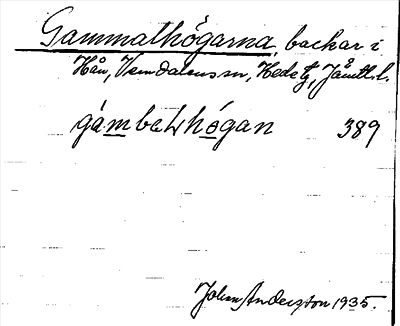 Gammalhögarna, backar i
Hån, Vemdalens sn, Hede tg, Jämtl. l.
gàmbaLhógan 389
John Anderzon 1935.